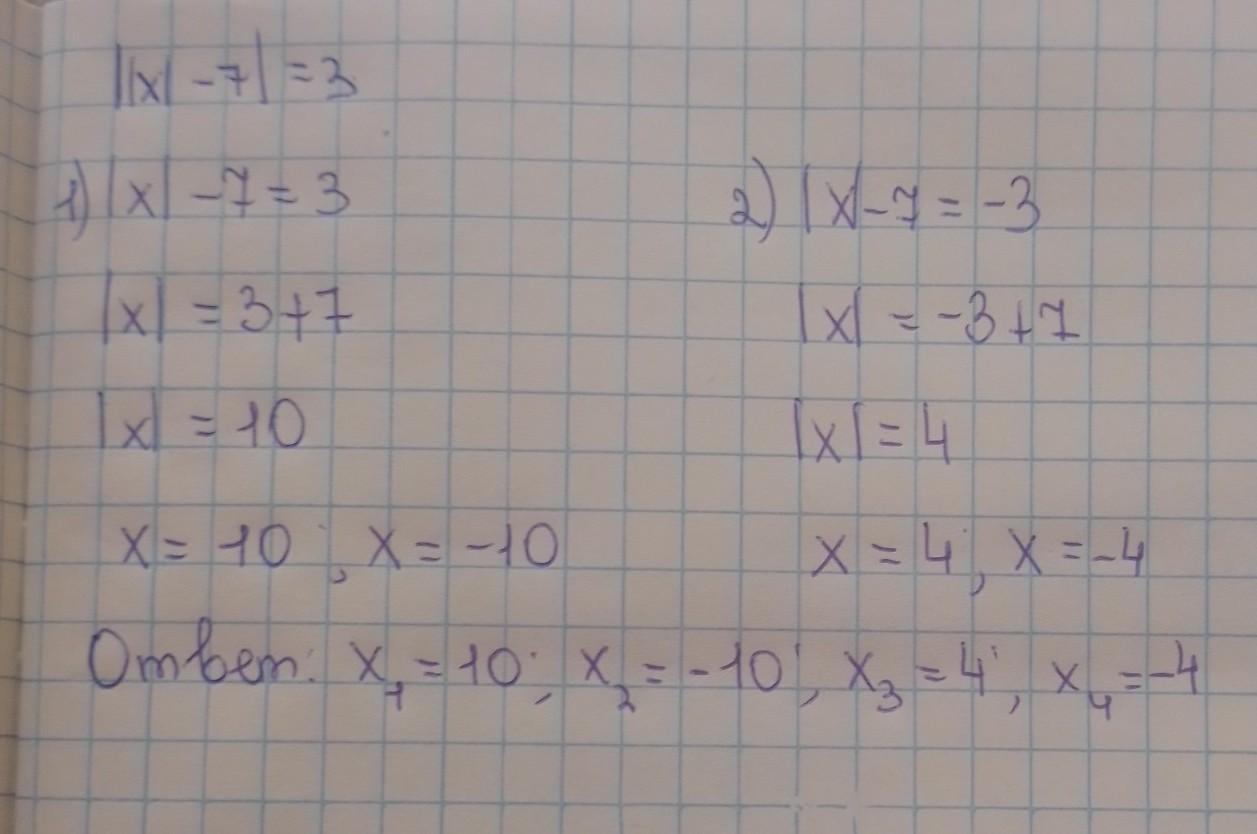 ||x| -7| = 3
1) |x| -7 = 3
|x| = 3+7
|x| = 10
x = 10 ; x = -10
2) |x| -7 = -3
|x| = -3+7
|x| = 4
x = 4; x = -4
Ответ: x₁ = 10; x₂ = -10; x₃ = 4; x₄ = -4